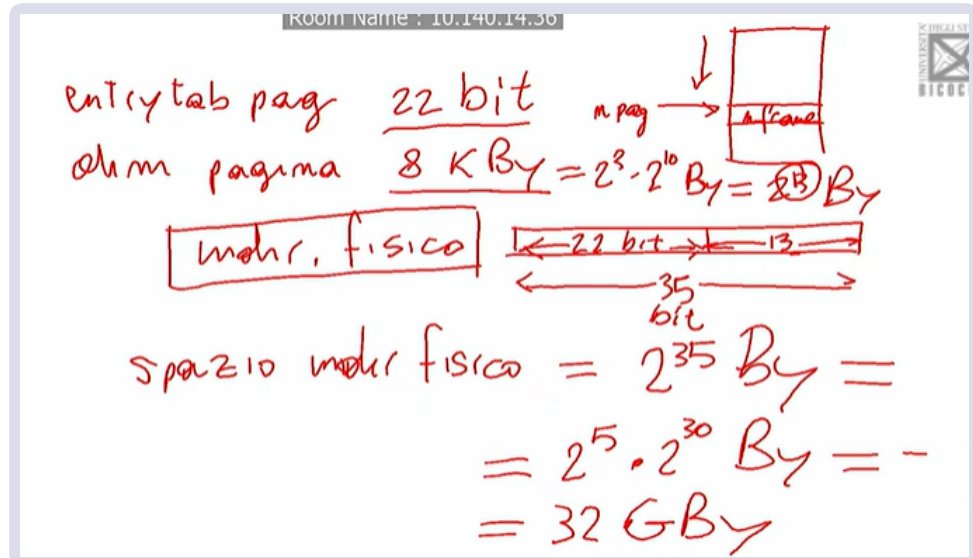 Room Name : 10.140.14.36
UNIVERSITÀ DEGLI ST
BICOC
entry tab pag 22 bit
n pag
n frame
dim pagina 8 K By = 2³ · 2¹⁰ By = 2¹³ By
indir. fisico
22 bit 13
35
bit
spazio indir fisico = 2³⁵ By =
= 2⁵ . 2³⁰ By =
= 32 GBy